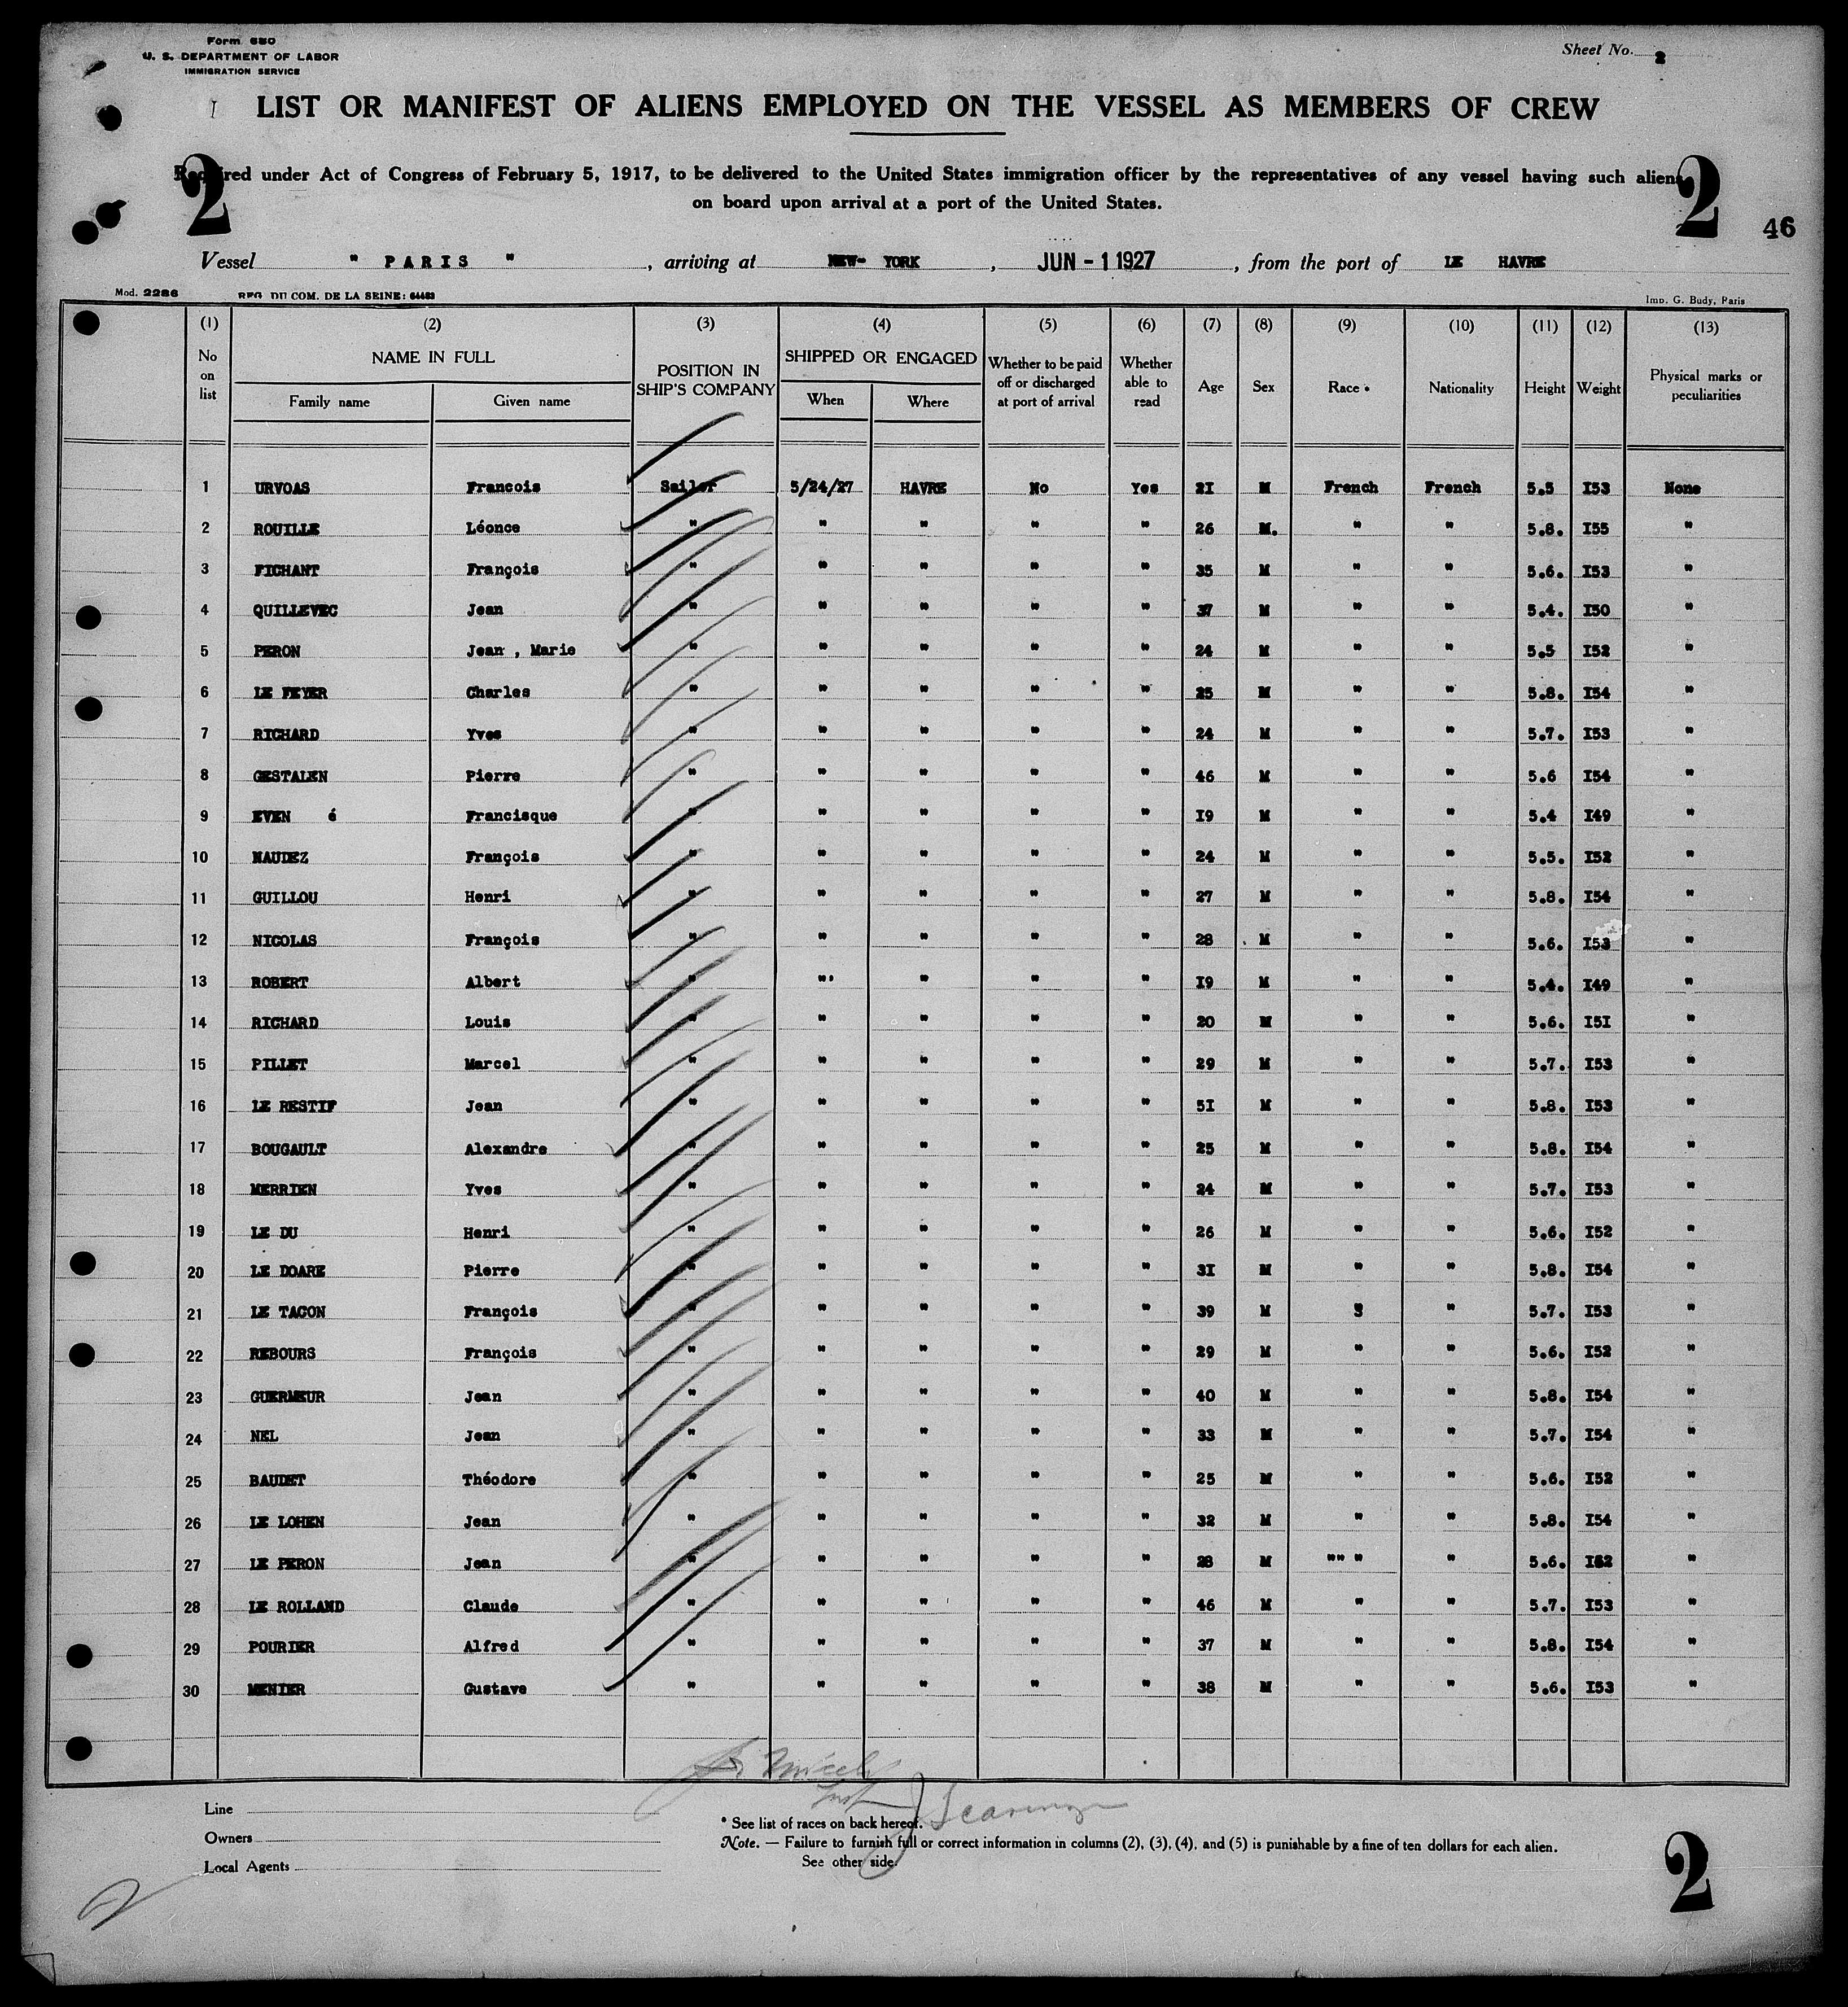 Form 680
U. S. DEPARTMENT OF LABOR
IMMIGRATION SERVICE
Sheet No. 2
LIST OR MANIFEST OF ALIENS EMPLOYED ON THE VESSEL AS MEMBERS OF CREW
2 Required under Act of Congress of February 5, 1917, to be delivered to the United States immigration officer by the representatives of any vessel having such aliens 2
on board upon arrival at a port of the United States.
46
Vessel " PARIS " , arriving at NEW- YORK , JUN - 1 1927 , from the port of LE HAVRE
Mod. 2286 REG. DU COM. DE LA SEINE: 64483 Imp. G. Budy, Paris
(1) (2) (3) (4) (5) (6) (7) (8) (9) (10) (11) (12) (13)
No on list NAME IN FULL Family name Given name POSITION IN SHIP'S COMPANY SHIPPED OR ENGAGED When Where Whether to be paid off or discharged at port of arrival Whether able to read Age Sex Race * Nationality Height Weight Physical marks or peculiarities
1 URVOAS Francois Sailor 5/24/27 HAVRE No Yes 2I M French French 5.5 I53 None
2 ROUILLE Léonce " " " " " 26 M. " " 5.8. I55 "
3 FICHANT François " " " " " 35 M " " 5.6. I53 "
4 QUILLEVEC Jean " " " " " 37 M " " 5.4. I50 "
5 PERON Jean , Marie " " " " " 24 M " " 5.5 I52 "
6 LE FEYER Charles " " " " " 25 M " " 5.8. I54 "
7 RICHARD Yves " " " " " 24 M " " 5.7. I53 "
8 GESTALEN Pierre " " " " " 46 M " " 5.6 I54 "
9 EVEN é Francisque " " " " " I9 M " " 5.4 I49 "
10 NAUDEZ François " " " " " 24 M " " 5.5. I52 "
11 GUILLOU Henri " " " " " 27 M " " 5.8. I54 "
12 NICOLAS François " " " " " 28 M " " 5.6. I53 "
13 ROBERT Albert " " " " " I9 M " " 5.4. I49 "
14 RICHARD Louis " " " " " 20 M " " 5.6. I5I "
15 PILLET Marcel " " " " " 29 M " " 5.7. I53 "
16 LE RESTIF Jean " " " " " 5I M " " 5.8. I53 "
17 BOUGAULT Alexandre " " " " " 25 M " " 5.8. I54 "
18 MERRIEN Yves " " " " " 24 M " " 5.7. I53 "
19 LE DU Henri " " " " " 26 M " " 5.6. I52 "
20 LE DOARE Pierre " " " " " 3I M " " 5.8. I54 "
21 LE TACON François " " " " " 39 M " 5.7. I53 "
22 REBOURS François " " " " " 29 M " " 5.6. I52 "
23 GUERMEUR Jean " " " " " 40 M " " 5.8. I54 "
24 NEL Jean " " " " " 33 M " " 5.7. I54 "
25 BAUDET Théodore " " " " " 25 M " " 5.6. I52 "
26 LE LOHEN Jean " " " " " 32 M " " 5.8. I54 "
27 LE PERON Jean " " " " " 28 M "" " " 5.6. I52 "
28 LE ROLLAND Claude " " " " " 46 M " " 5.7. I53 "
29 POURIER Alfred " " " " " 37 M " " 5.8. I54 "
30 MENIER Gustave " " " " " 38 M " " 5.6. I53 "
Line
Owners
Local Agents
* See list of races on back hereof.
Note. — Failure to furnish full or correct information in columns (2), (3), (4), and (5) is punishable by a fine of ten dollars for each alien.
See other side.
2
2